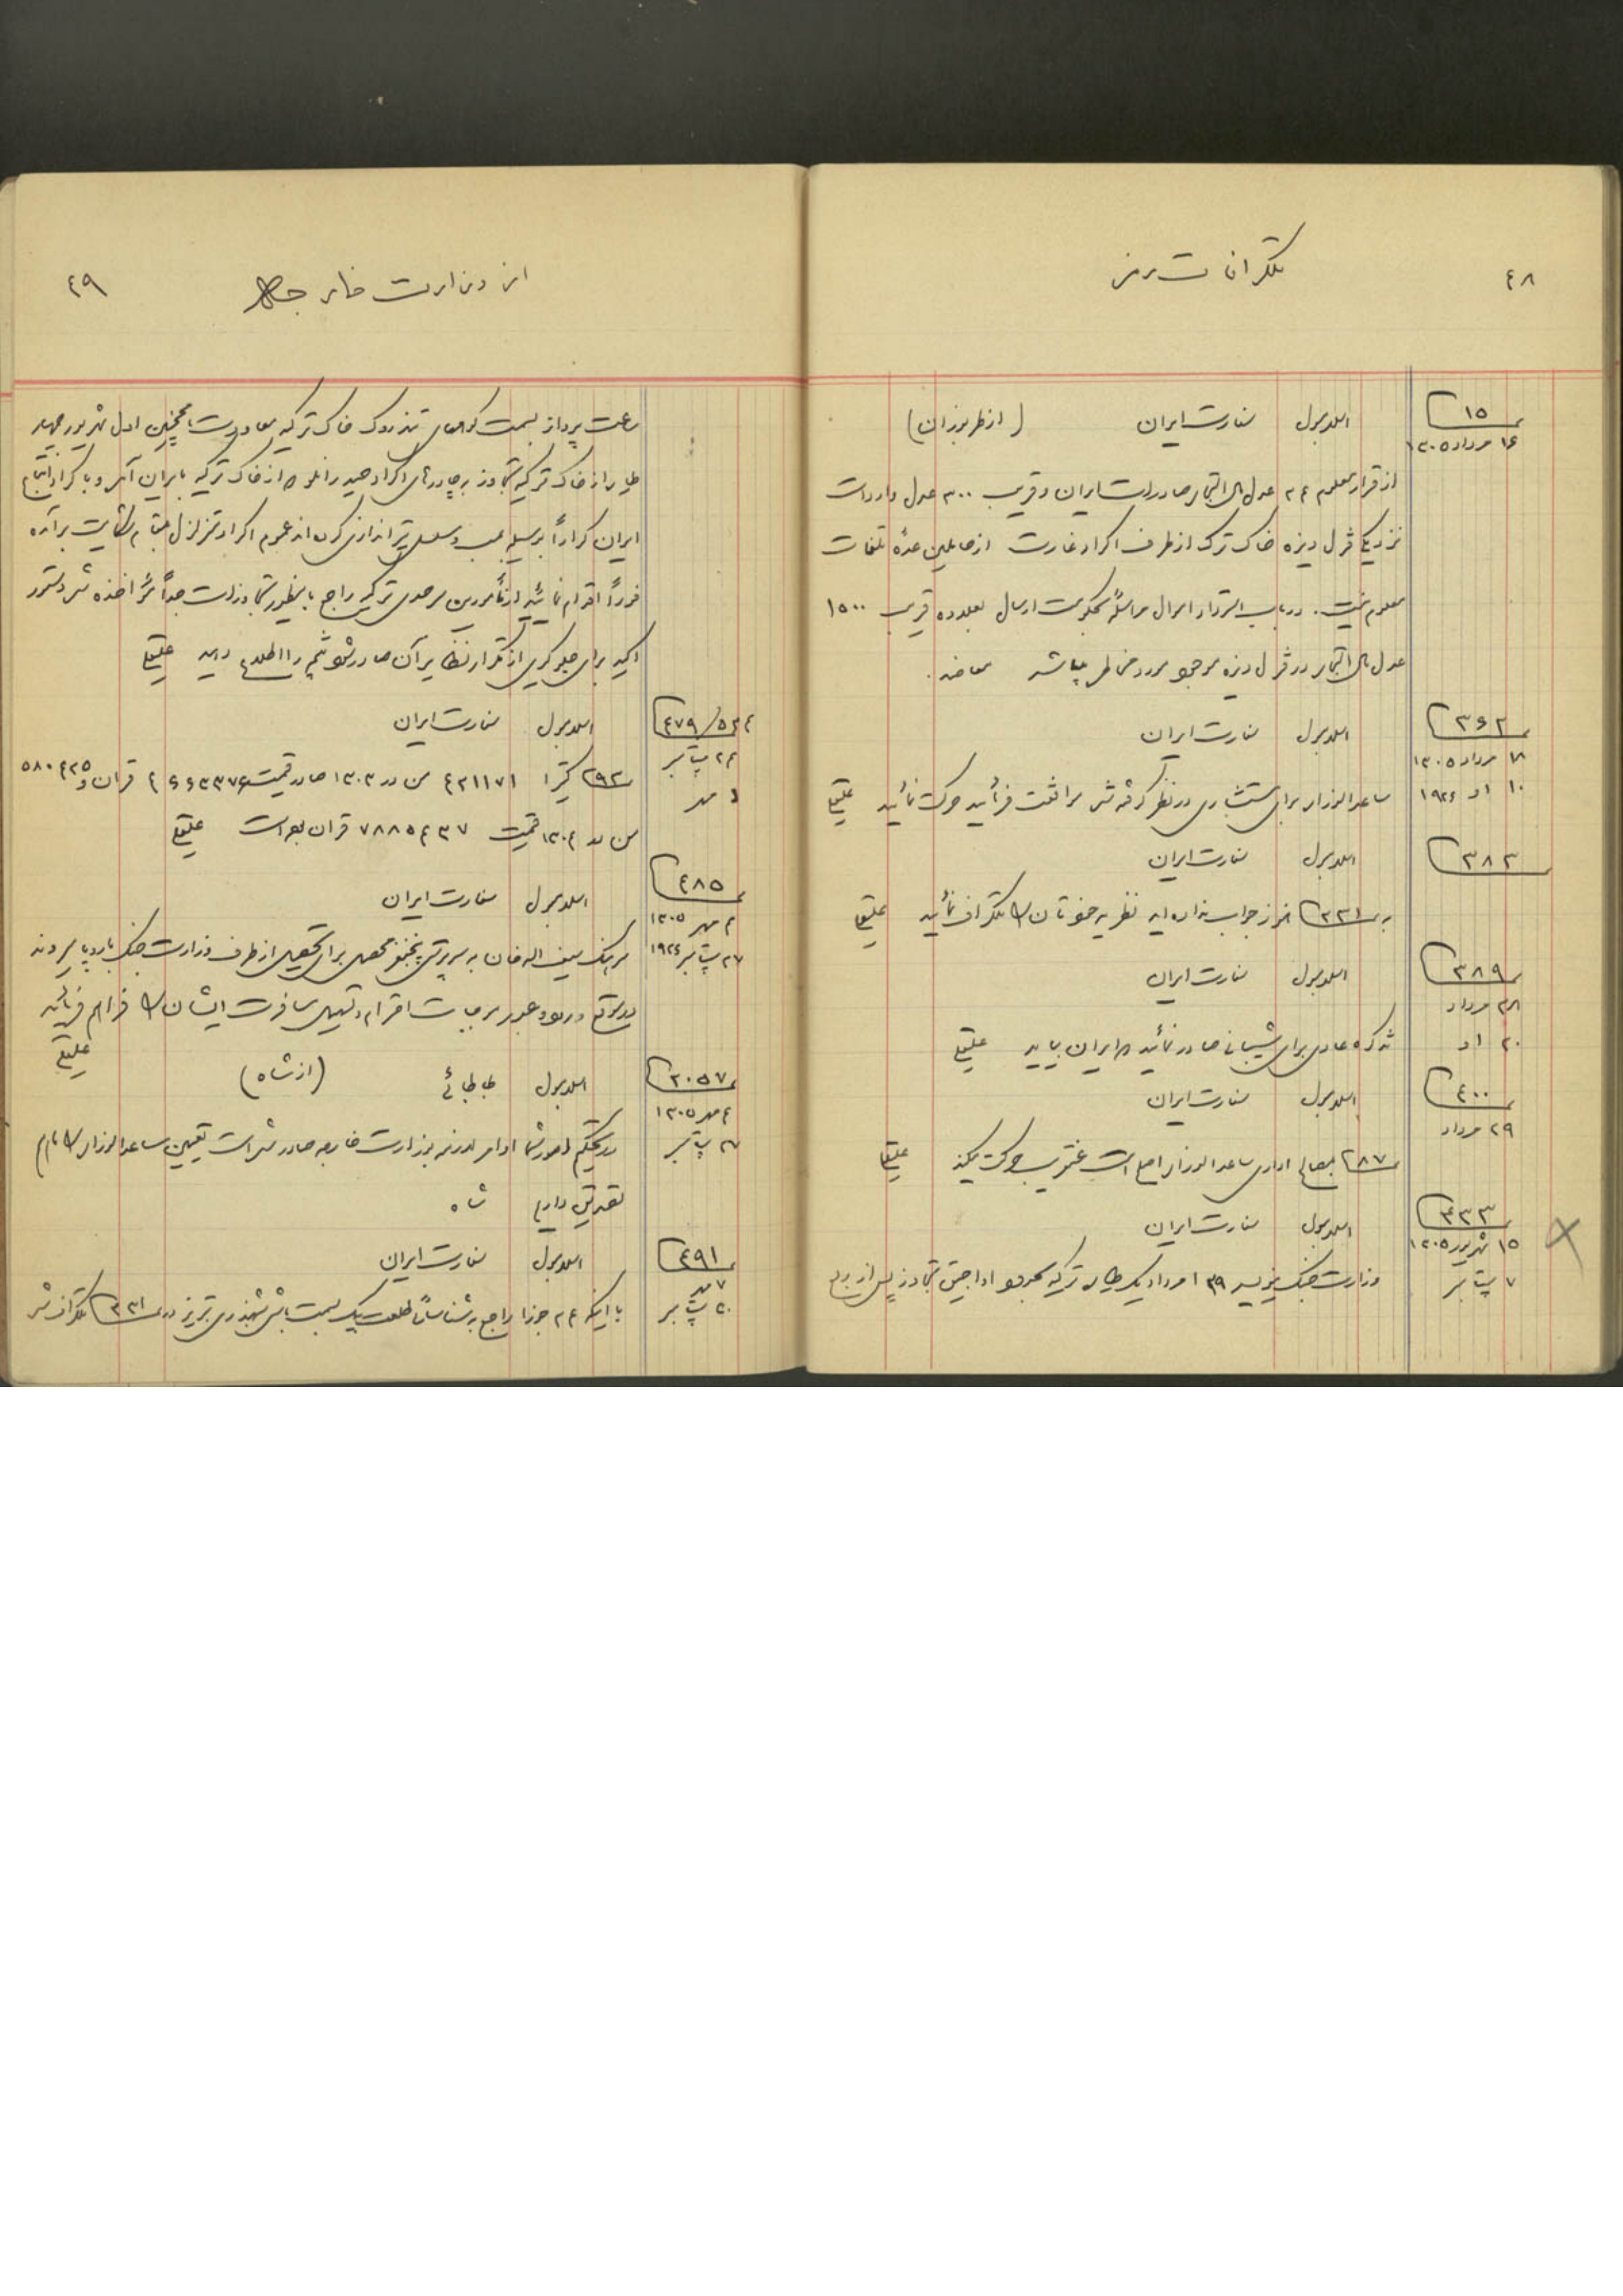 ۴۸
تلگرافات رمز
۱۵
۱۶ مرداد ۱۳۰۵
اسلامبول سفارت ایران (از طرابوزان)
از قرار معلوم ۲۴ عدل مال التجاره صادرات ایران و قریب ۳۰۰ عدل واردات
نزدیک قزل دیزه خاک ترک از طرف اکراد غارت از حاملین عدهٔ تلفات
معلوم نیست. در باب استرداد اموال مراسله بحکومت ارسال بعلاوه قریب ۱۵۰۰
عدل مال التجاره در قزل دیزه موجود مورد مخاطره میباشد معاضد.
۳۶۲
۱۸ مرداد ۱۳۰۵
۱۰ اوت ۱۹۲۶
اسلامبول سفارت ایران
ساعد الوزاره برای مستشاری در نظر گرفته شد موافقت فرمائید حرکت نمائید علیقلی
۳۸۳
اسلامبول سفارت ایران
به ۳۳۱ هنوز جواب نداده اید نظریه خودتان را تلگراف نمائید علیقلی
۳۸۹
۲۸ مرداد
۲۰ اوت
اسلامبول سفارت ایران
تذکره عادی برای شیبانی صادر نمائید بایران بیاید علیقلی
۴۰۰
۲۹ مرداد
اسلامبول سفارت ایران
۲۸۷ بمصالح اداری ساعد الوزاره اصلح است عنقریب حرکت میکند علیقلی
۴۳۳
۱۵ شهریور ۱۳۰۵
۷ سپتامبر
اسلامبول سفارت ایران
وزارت جنگ مینویسد ۳۹ مرداد یک طیاره ترکیه بحدود اواجیق تجاوز پس از ربع
از وزارت خارجه
۴۹
ساعت پرواز بسمت کوههای تندروک خاک ترکیه معاودت همچنین اول شهریور چهار
طیاره از خاک ترکیه تجاوز به چادرهای اکراد حیدرانلو که از خاک ترکیه بایران آمده و با اکراد اتباع
ایران کراراً بوسیله بمب و مسلسل تیراندازی کرده اند عموم اکراد متزلزل بمقام شکایت برآمده
فوراً اقدام نمائید از مأمورین سرحدی ترکیه راجع باینطور تجاوزات جداً مؤاخذه شده دستور
اکید برای جلوگیری از تکرار نظایر آن صادر شود نتیجه را اطلاع دهید علیقلی
۴۷۹/۵۲۴
۲۴ سپتامبر
۱ مهر
اسلامبول سفارت ایران
۲۹۲ کتیرا ۴۲۱۱۷۱ من در ۱۳۰۳ صادر قیمت ۴۶۶۳۳۷۶ قران و ۵۸۰۴۲۵
من در ۱۳۰۴ قیمت ۷۸۸۵۴۳۷ قران بوده است علیقلی
۴۸۵
۴ مهر ۱۳۰۵
۲۷ سپتامبر ۱۹۲۶
اسلامبول سفارت ایران
سرهنگ سیف اله خان به سرپرستی پنجنفر محصل برای تحصیل از طرف وزارت جنگ باروپا میروند
در موقع ورود و عبور موجبات احترام و تسهیل مسافرت ایشان را فراهم فرمائید
علیقلی
۲۰۵۷
۴ مهر ۱۳۰۵
۲۷ سپتامبر
اسلامبول طباطبائی (از شاه)
در تحکیم امور شما اوامر لازمه بوزارت خارجه صادر شده است تعیین ساعد الوزاره را هم
تصدیق داریم شاه
۴۹۱
۷ مهر
۳۰ سپتامبر
اسلامبول سفارت ایران
با اینکه ۲۴ جوزا راجع به شناسائی طلعت بیک بسمت باش شهبندری تبریز در ۳۳۱ تلگراف شد